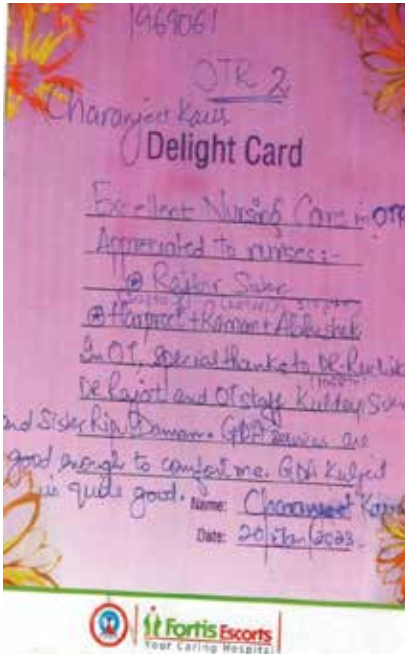 1969061
OTR 2
Charanjeet Kaur
Delight Card
Excellent Nursing Care in OTR
Appreciated to nurses:-
Rajbir Sister
Harpreet + Raman + Abhishek
In OT, special thanks to DR.
DR Rajat and OT staff Kuldeep Sister
and Sister Ripu Daman. GDA services are
good enough to comfort me. GDA Kuljit
is quite good.
Name: Charanjeet Kaur
Date: 20/Jan/2023
Fortis Escorts
Your Caring Hospital